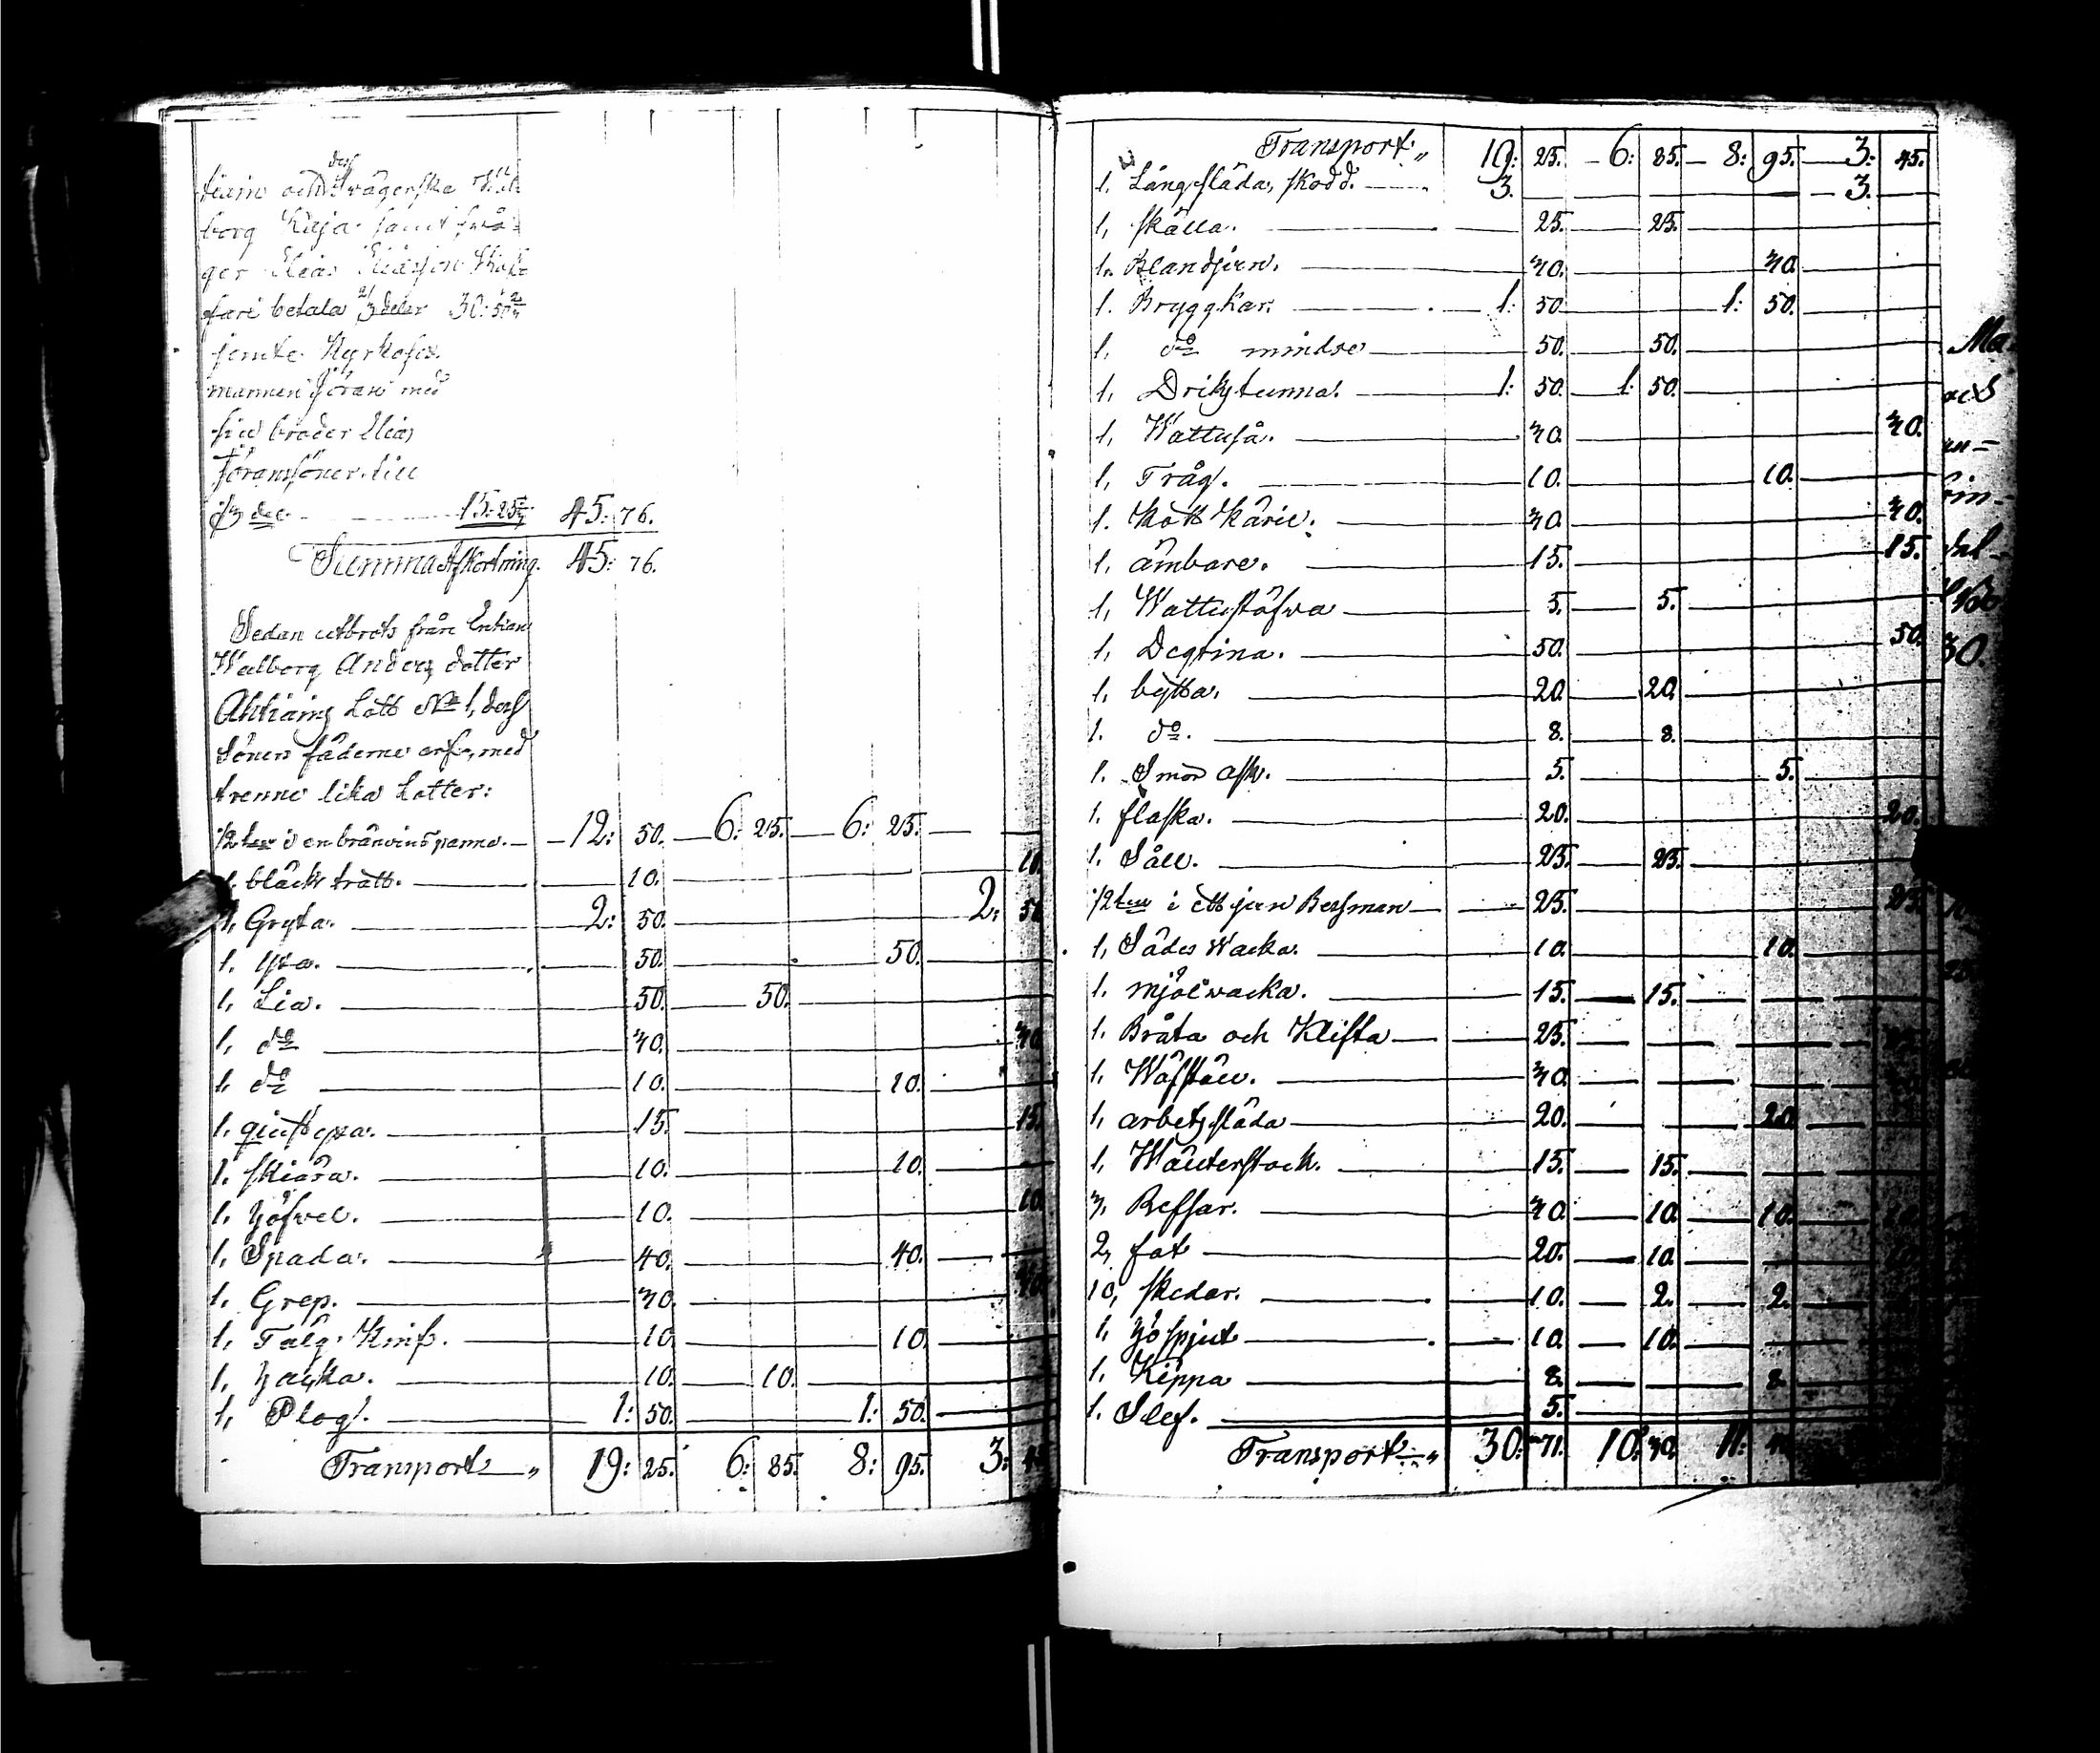 dess
tiain och Swägerska Wal-
borg Kaja samt swå-
ger Elias Eliasson
betala 2/3 delar 30: 50 2/3
jemte Kyrkofis-
mannen Jöran med
sin broder Elias
Jöranssöner till
1/3 del 15: 25 1/3 45: 76.
Summa Afkortning. 45: 76.
Sedan utbröts från Enkan
Walborg Anders dotter
Ahtiains Lott No 1, dess
Söners fäderne arf, med
trenne lika Lotter:
1/2 i en bränvins panna. 12: 50. 6: 25. 6: 25.
1. bläck tratt. 10. 10.
1, Gryta. 2: 50. 2: 50
1. yxa. 50. 50.
1, Lia. 50. 50.
1, do 30. 30
1, do 10. 10.
1. 15. 15.
1. skiära. 10. 10.
1. höfvel. 10. 10.
1, Spada. 40. 40.
1. Grep. 30.
1, Tälg Knif. 10. 10.
1, hacka. 10. 10.
1, Plog. 1: 50. 1: 50.
Transport 19: 25. 6: 85. 8: 95. 3:
Transport 19: 25. 6: 85. 8: 95. 3: 45.
1. Långsläda, skodd. 3. 3.
1, skälla. 25. 25.
1. Blandjern. 30. 30
1. Bryggkar. 1: 50 1: 50.
1, do mindre 50. 50.
1, Drikstunna. 1: 50. 1: 50.
1, Wattuså. 30. 30.
1, Tråg. 10. 10.
1. Kött Käril. 30. 30.
1, ämbare. 15. 15.
1, Wattustöfwa 5. 5.
1, Degtina. 50. 50.
1, bytta. 20. 20.
1. do. 8. 8.
1. Smör ask. 5. 5.
1. flaska. 20. 20.
1. Såll. 25. 25.
1/2 i ett jern Besman 25. 25.
1, Sädes wacka. 10. 10.
1. mjölwacka. 15. 15.
1. Bråta och Klifta 25.
1. Wäfstäu. 30.
1, arbetssläda 20. 20
1, Wäuterstock. 15. 15.
3, Reffsar. 30. 10. 10.
2, fat 20. 10.
10, skedar. 10. 2. 2.
1, höspjut 10. 10.
1. Kippa 8. 8.
1. Slef. 5.
Transport 30: 71. 10: 30. 11:
Ma
och
30.